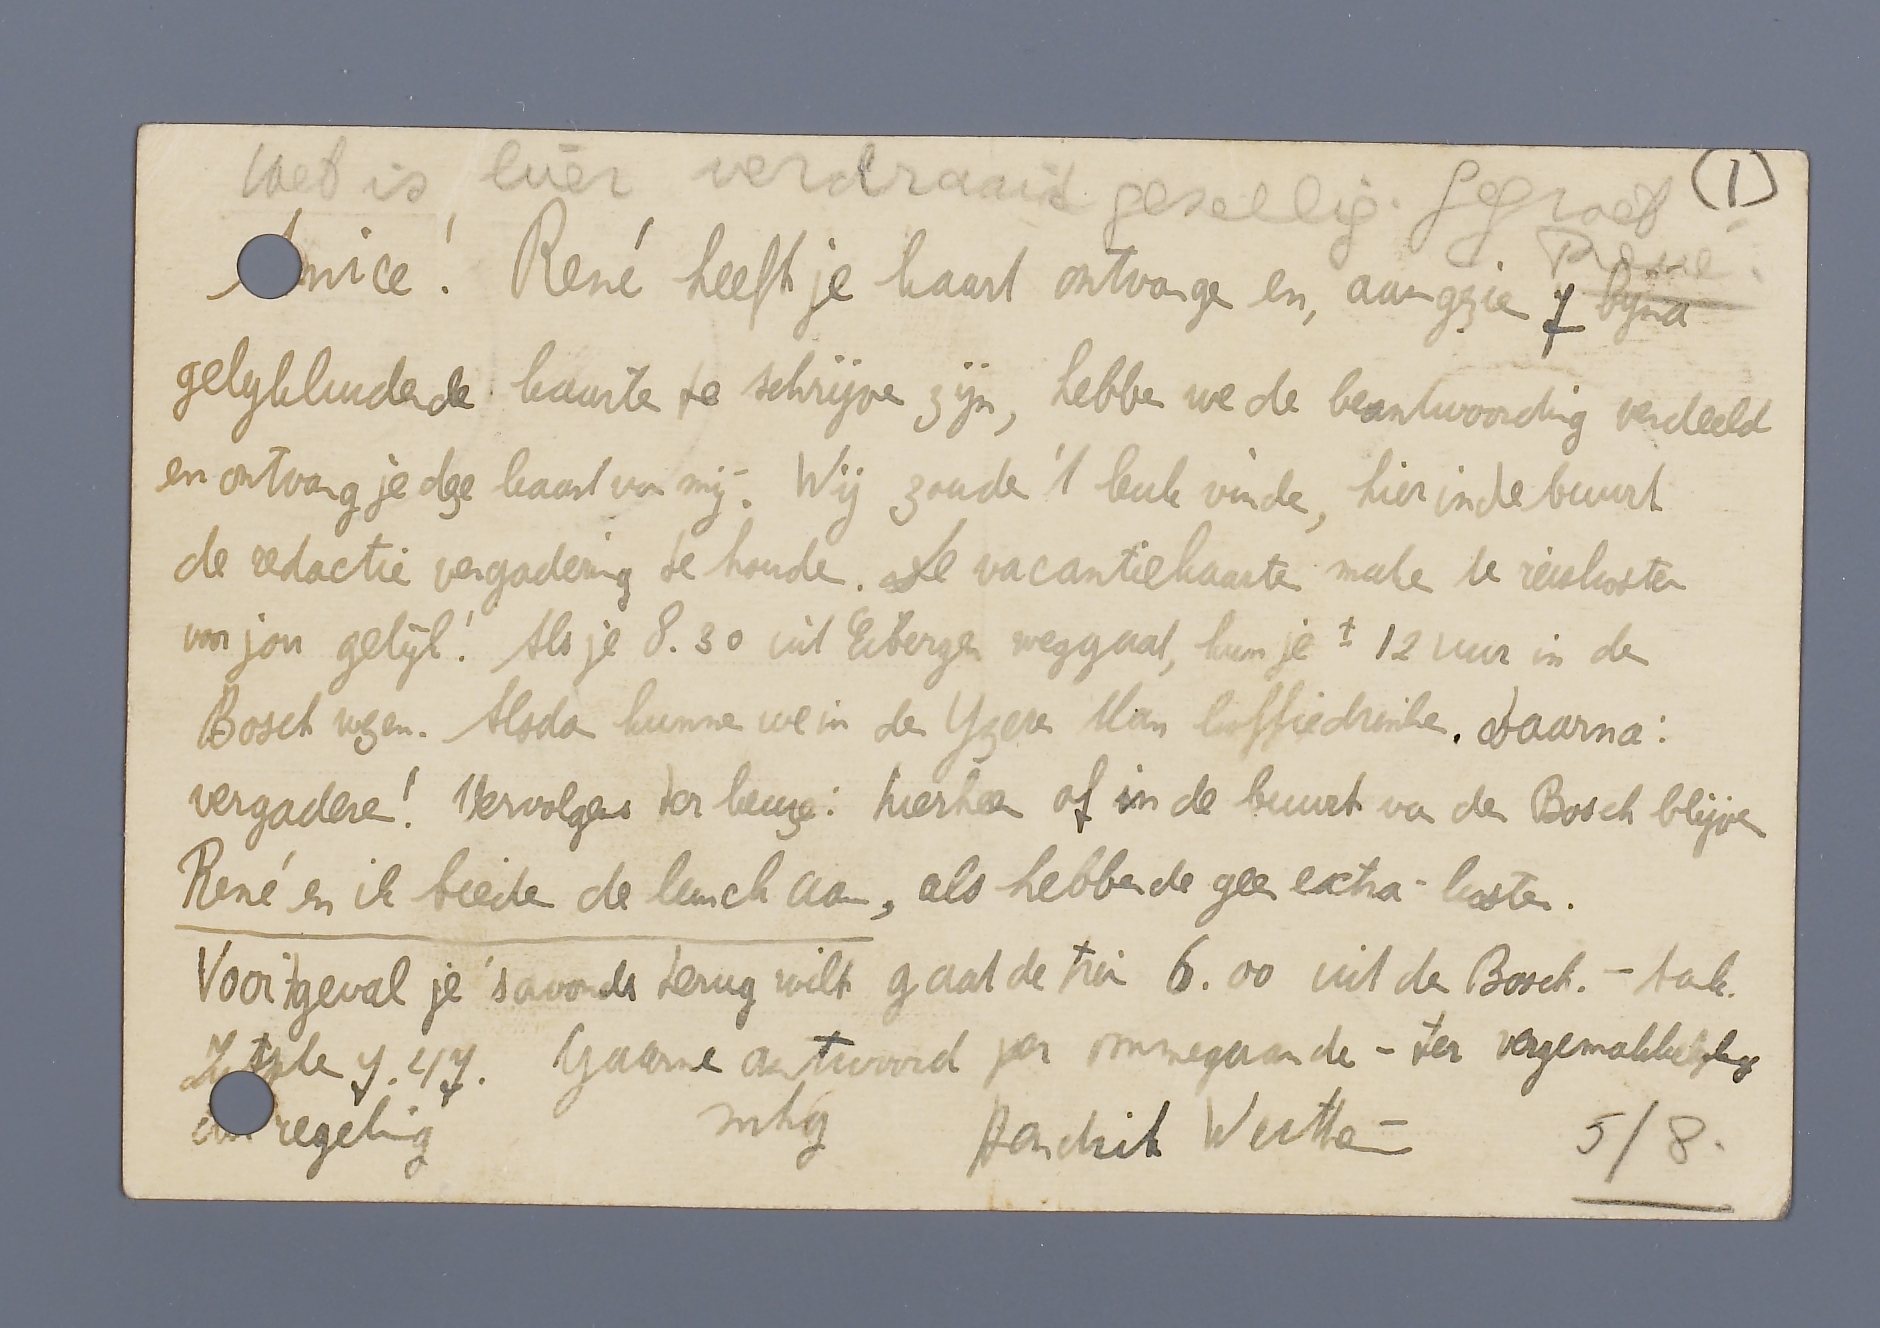 Het is hier verdraaid gesellig. Gegroet
René.
①
Amice! René heeft je kaart ontvange en, aangezie 7 byna
gelykluidende kaarte te schrijve zijn, hebbe we de beantwoording verdeeld
en ontvang je deze kaart van mij. Wij zoude 't leuk vinde, hier in de buurt
de redactie vergadering te houde. De vacantiekaarte make te reiskosten
voor jou gelijk! Als je 8.30 uit Eibergen weggaat, kun je ± 12 uur in den
Bosch wezen. Alsdan kunnen we in den Yzeren Man koffiedrinken. Daarna:
vergadere! Vervolgens ter keuze: hierheen of in de buurt van den Bosch blijven
René en ik bieden de lunch aan, als hebbende geen extra-kosten.
Voor 't geval je 's avonds terug wilt gaat de trein 6.00 uit den Bosch. - aank.
7.47. Gaarne antwoord per ommegaande - ter vergemakkelijking
regeling mhg Hendrik
5/8.